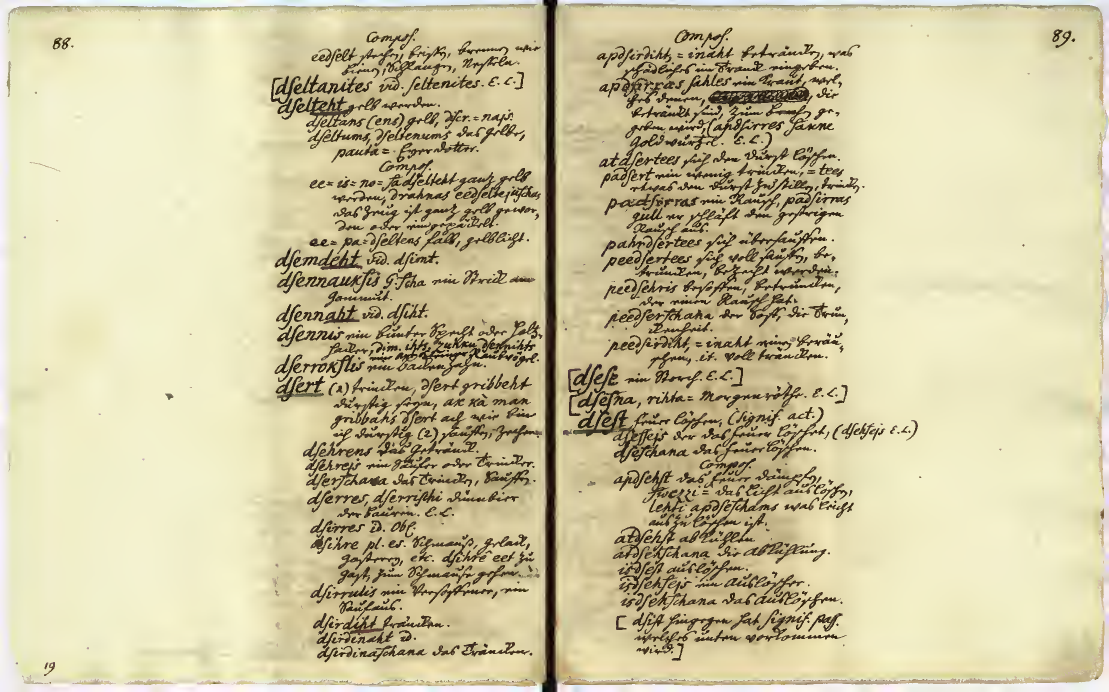 88.
Compos.
eedselt stechen, beissen, brennen wie
bienen, Schlangen, Nesseln.
[dseltanites vid. seltenites. E. L.]
dselteht gelb werden.
dseltans (ens) gelb, dser. = najs.
dseltums, dseltenums das gelbe,
pauta = Eyerdotter.
Compos.
ee = is = no = sadselteht ganz gelb
werden, drahnas eedseltejuschas
das Zeug ist ganz gelb gewor,
den oder eingepökelt.
ee = pa = dseltens falb, gelblicht.
dsemdeht vid. dsimt.
dsennauksis G. Scha ein Strick am
gommut.
dsennaht vid. dsiht.
dsennis ein bunter Specht oder Holz,
hacker, dim. ihts, Zukku dsennihts
dserrokslis ein backenzahn.
dsert (1) trincken, dsert gribbeht
durstig seyn, ak kà man
gribbahs dsert ach wie bin
ich durstig (2) sauffen, Zechen
dsehrens das Getränck.
dsehrejs ein Säufer oder Trincker.
dserschana das Trincken, Sauffen.
dserres, dserrischi dünnbier
der bauren. E. L.
dsirres id. Obl.
dsihre pl. es. Schmauß, gelach,
gasterey, etc. dsihrê eet zu
gast, zum Schmause gehen.
dsirrulis ein Versoffener, ein
Saufaus.
dsirdiht träncken.
dsirdinaht id.
dsirdinaschana das Träncken.
19
89.
Compos.
apdsirdiht, = inaht beträncken, was
schädliches im Tranck eingeben.
apdsirras sahles ein Kraut, wel,
ches denen, die
betränckt sind, zum brechen ge,
geben wird, (apdsirres sakne
Goldwurzel. E. L.)
atdsertees sich den Durst löschen.
padsert ein wenig trincken, = tees
etwas den Durst zu stillen, trinck.
padsirras ein Rausch, padsirras
gull er schläft den gestrigen
Rausch aus.
pahrdsertees sich übersauffen.
peedsertees sich voll sauffen, be,
truncken, bezecht werden.
peedsehris besoffen, betruncken,
der einen Rausch hat.
peedserschana der Soff, die Trun,
ckenheit.
peedsirdiht, = inaht einen beräu,
schen, it. voll träncken.
[dsese ein Storch. E. L.]
[dsesna, rihta = Morgenröthe. E. L.]
dsest feuer löschen, (signif. act.)
dsessejs der das feuer löschet, (dsehsejs E. L.)
dseschana das feuerlöschen.
Compos.
apdsehst das feuer dämpfen,
swezzi = das licht auslöschen,
lehti apdseschams was leicht
auszulöschen ist.
atdsehst abkühlen.
atdsehschana die Abkühlung.
isdsest auslöschen.
isdsehsejs ein Auslöscher.
isdsehschana das Auslöschen.
[dsist hingegen hat signif. pass.
welches unten vorkommen
wird.]